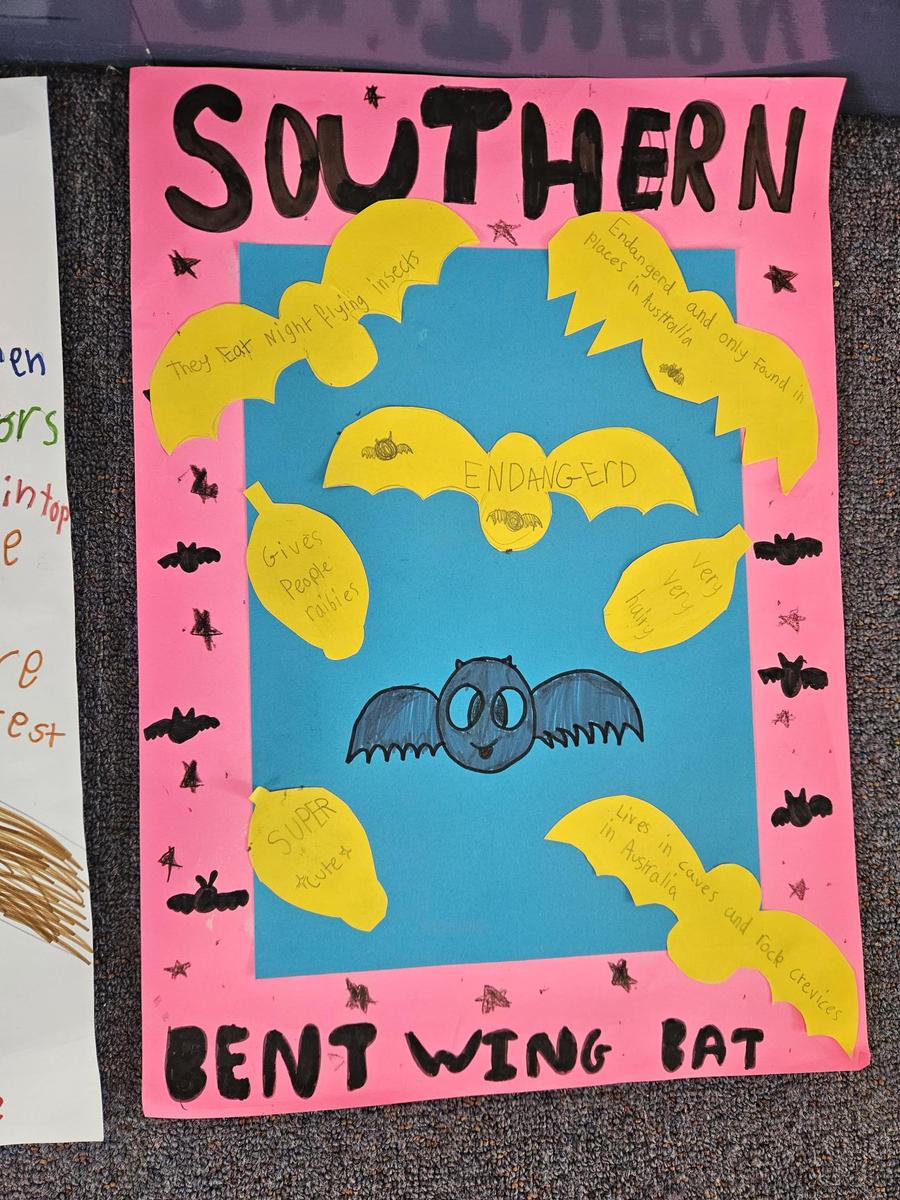 SOUTHERN
They Eat Night flying insects
Endangerd and only found in
places in Australia
ENDANGErD
Gives
People
raibies
Very
Very
hairy
SUPER
cute
Lives in caves and rock crevices
in Australia
BENT WING BAT
en
ors
intop
e
re
rest